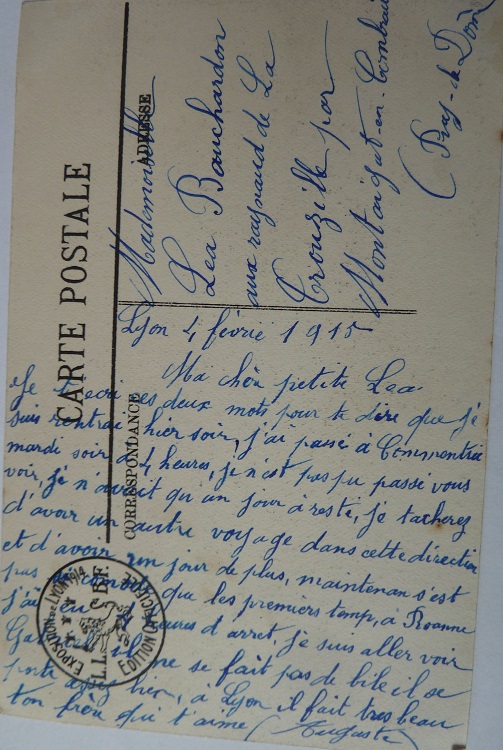 CARTE POSTALE
ADRESSE
Mademoiselle
Lea Bouchardon
aux raynaud de La
Crouzille par
Montaigut-en-Combrail
(Puy-de Dôm
CORRESPONDANCE
Lyon 4 févrié 1915
Ma chère petite Lea
Je t'ecri ses deux mots pour te dire que je
suis rentrai hier soir, j'ai passé à Commentrie
mardi soir a 4 heures, je n'est pas pu passé vous
voir, je n'avait qu un jour à resté, je tacherez
d'avoir un autre voyage dans cette direction
et d'avoir un jour de plus, maintenan s'est
pas comode que les premiers temp, à Roanne
j'ai eu heures d'arret, je suis aller voir
il me se fait pas de bile il se
porte assez bien, à Lyon il fait tres beau
ton frère qui t'aime (Auguste
EXPOSITION DE LYON 1914
EDITION OFFICIELLE